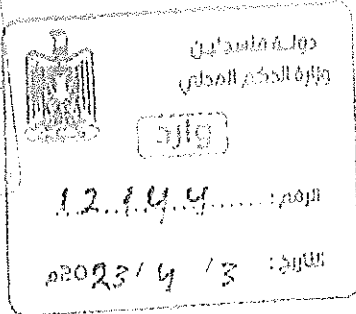 دولة فلسطين
وزارة الحكم المحلي
وارد
الرقم: 12144
التاريخ: 3 / 4 / 2023م